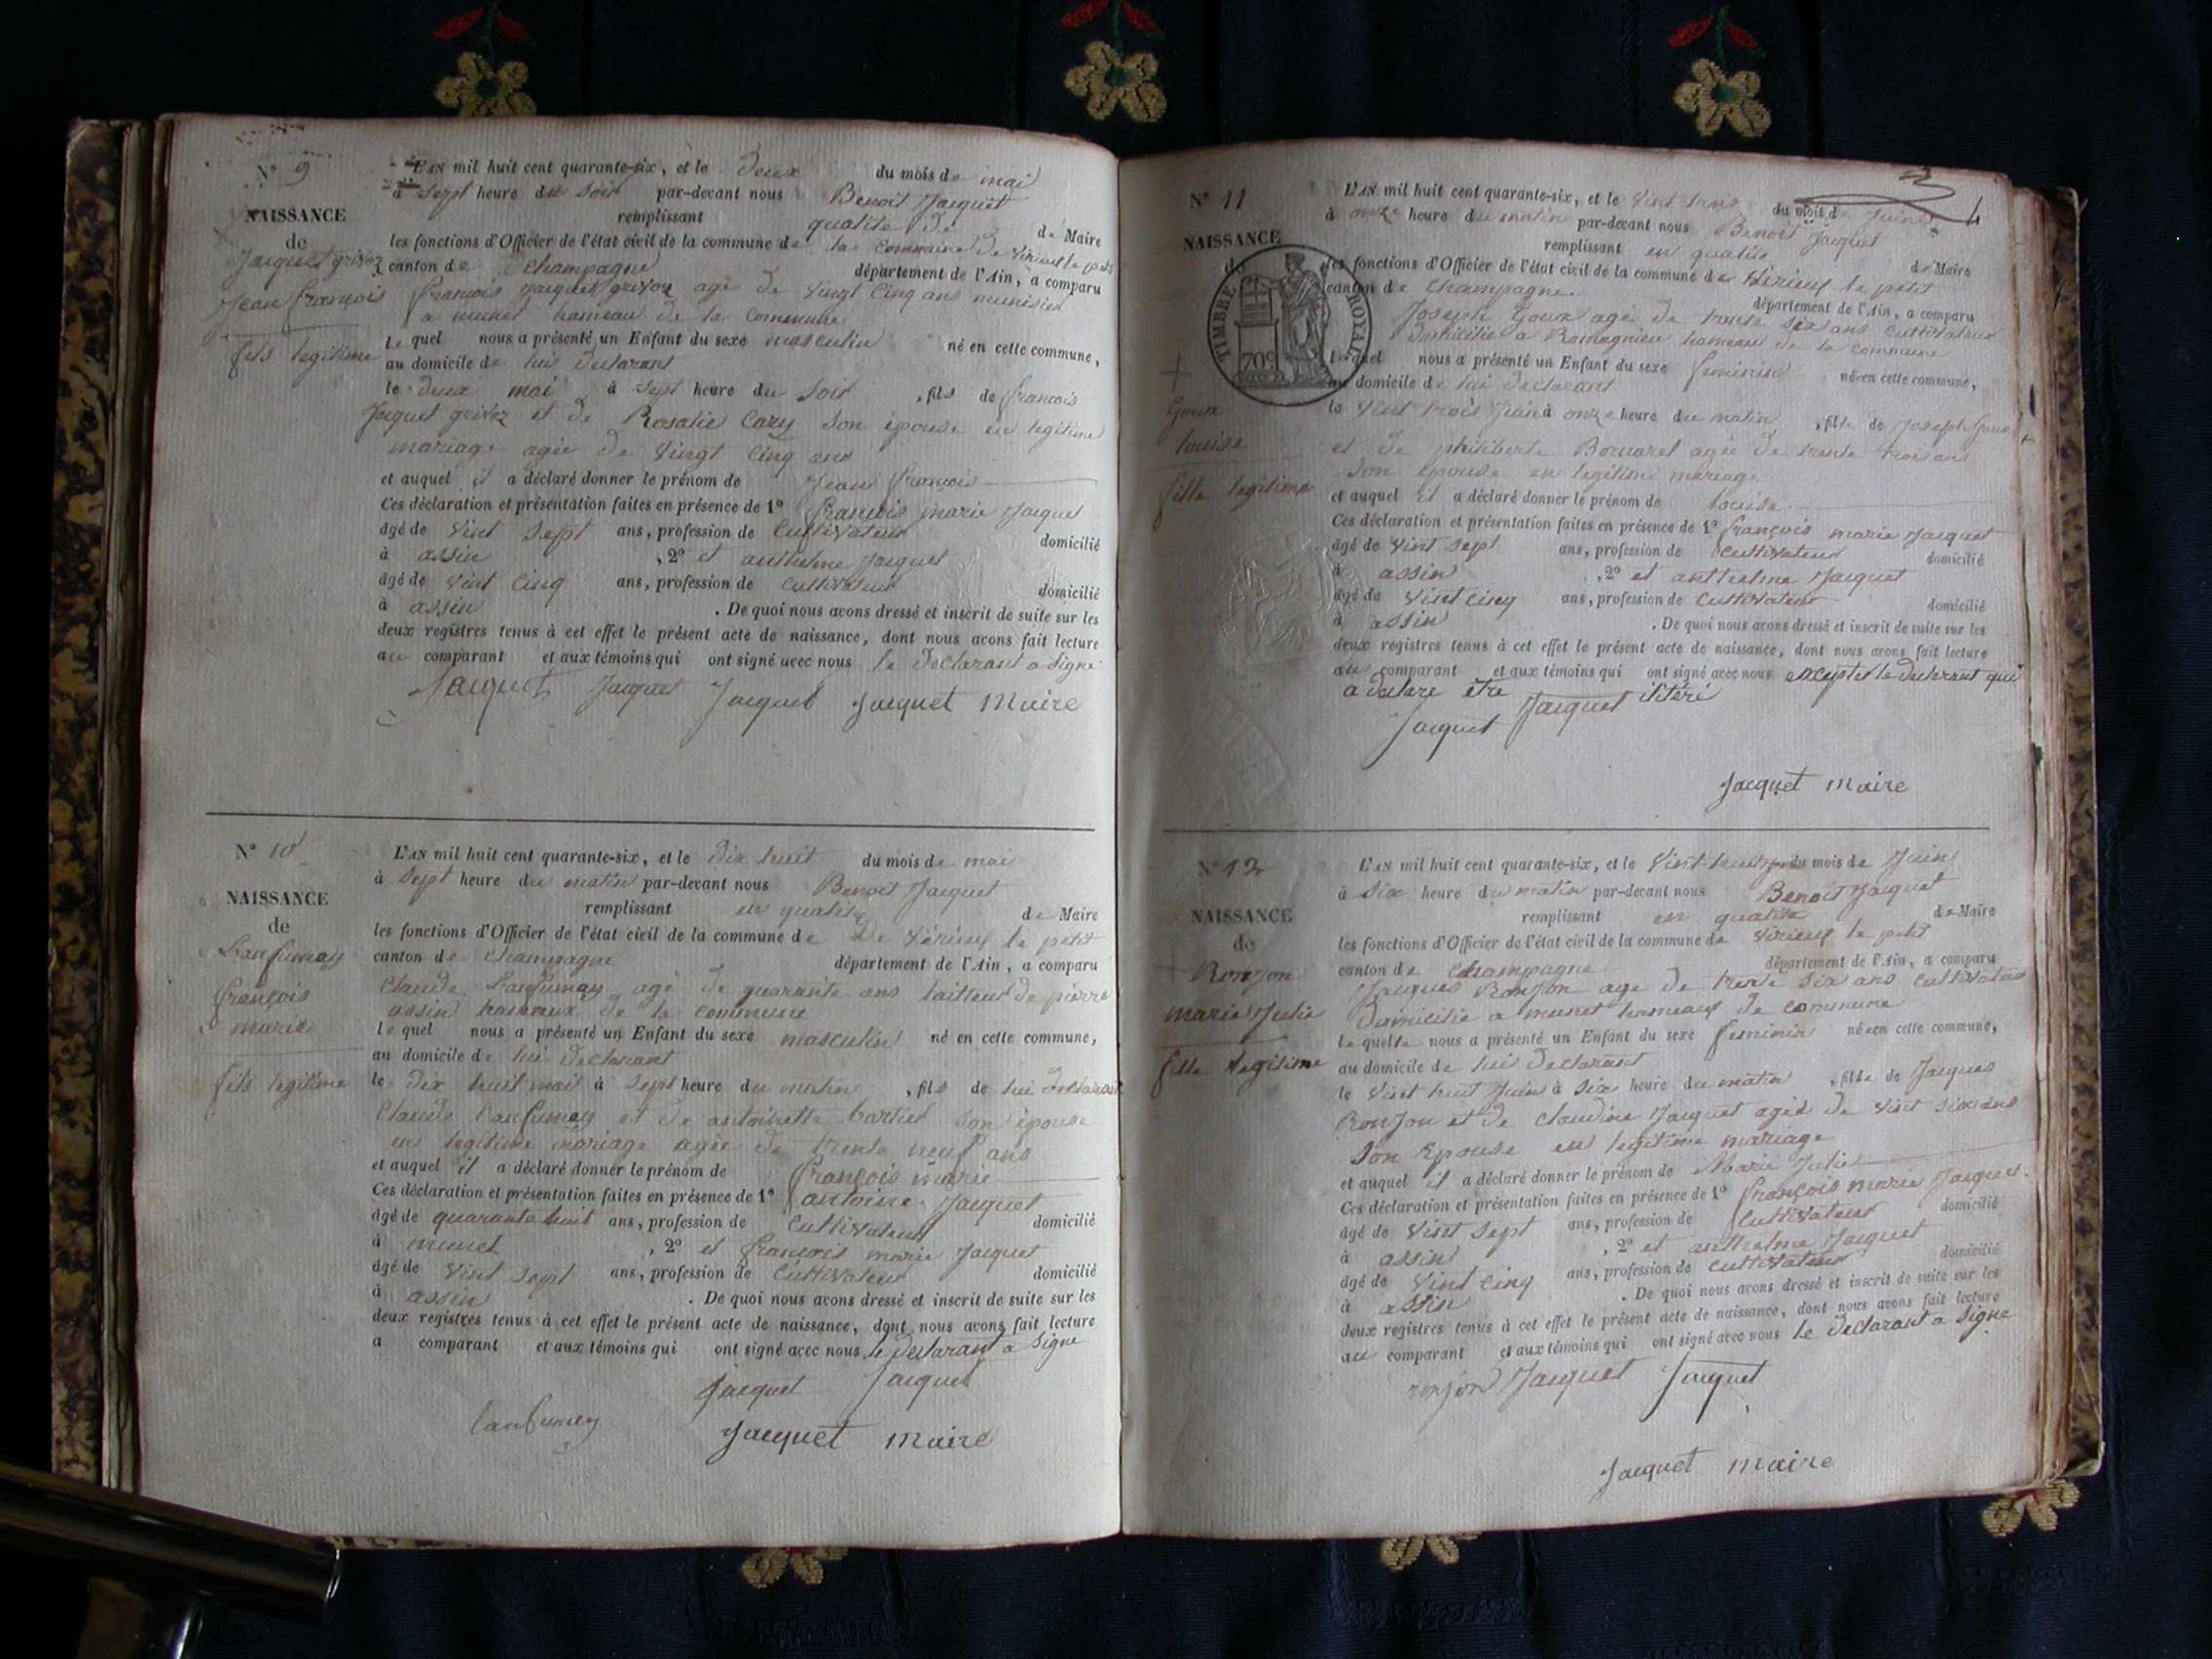 N° 9
NAISSANCE
de
Jacquet grivoz
Jean françois
fils legitime
L'AN mil huit cent quarante-six, et le Deux du mois de mai
à Sept heure du Soir par-devant nous Benoit Jacquet
remplissant qualite de de Maire
les fonctions d'Officier de l'état civil de la commune de la commune de Virieu le petit
canton de Champagne département de l'Ain, a comparu
françois jacquet grivoz agé de Vingt Cinq ans
a munet hameau de la Commune
Lequel nous a présenté un Enfant du sexe masculin né en cette commune,
au domicile de lui Declarant
le deux mai à Sept heure du Soir , fils de françois
Jacquet grivoz et de Rosalie Cozy Son épouse en legitime
mariage agée de Vingt Cinq ans
et auquel il a déclaré donner le prénom de Jean françois
Ces déclaration et présentation faites en présence de 1° françois marie Jacquet
âgé de Vint Sept ans, profession de Cultivateur domicilié
à assin , 2° et anthelme Jacquet
âgé de Vint Cinq ans, profession de Cultivateur domicilié
à assin . De quoi nous avons dressé et inscrit de suite sur les
deux registres tenus à cet effet le présent acte de naissance, dont nous avons fait lecture
au comparant et aux témoins qui ont signé avec nous le Declarant a Signe
Jacquet Jacquet Jacquet Jacquet Maire
N° 10
NAISSANCE
de
Lanfumey
françois
marie
fils legitime
L'AN mil huit cent quarante-six, et le Dix huit du mois de mai
à Sept heure du matin par-devant nous Benoit Jacquet
remplissant en qualite de Maire
les fonctions d'Officier de l'état civil de la commune de De Virieux le petit
canton de Champagne département de l'Ain, a comparu
Claude Lanfumey agé de quarante ans taitteur de pierre
assin hameaux de la Commune
lequel nous a présenté un Enfant du sexe masculin né en cette commune,
au domicile de lui Declarant
le Dix huit mai à Sept heure du matin , fils de lui Declarant
Claude Lanfumey et de antoinette Son épouse
en legitime mariage agée de trente neuf ans
et auquel il a déclaré donner le prénom de françois marie
Ces déclaration et présentation faites en présence de 1° antoine Jacquet
âgé de quarante huit ans, profession de Cultivateur domicilié
à munet , 2° et françois marie Jacquet
âgé de Vint Sept ans, profession de Cultivateur domicilié
à assin . De quoi nous avons dressé et inscrit de suite sur les
deux registres tenus à cet effet le présent acte de naissance, dont nous avons fait lecture
a comparant et aux témoins qui ont signé avec nous le Declarant a Signe
Jacquet Jacquet
lanfumey Jacquet maire
4
N° 11
NAISSANCE
de
TIMBRE ROYAL
70c
Goux
Louise
fille legitime
L'AN mil huit cent quarante-six, et le Vint trois du mois de Juin
à onze heure du matin par-devant nous Benoit Jacquet
remplissant en qualite de Maire
les fonctions d'Officier de l'état civil de la commune de Virieux le petit
canton de Champagne département de l'Ain, a comparu
Joseph Goux agé de trente Six ans Cultivateur
Domicilié a Romagnieu hameau de la Commune
lequel nous a présenté un Enfant du sexe feminin né en cette commune,
au domicile de lui Declarant
le Vint trois Juin à onze heure du matin , fille de Joseph Goux
et de philiberte agée de trente trois ans
Son épouse en legitime mariage
et auquel il a déclaré donner le prénom de Louise
Ces déclaration et présentation faites en présence de 1° françois marie Jacquet
âgé de Vint Sept ans, profession de Cultivateur domicilié
à assin , 2° et anthelme Jacquet
âgé de Vint Cinq ans, profession de Cultivateur domicilié
à assin . De quoi nous avons dressé et inscrit de suite sur les
deux registres tenus à cet effet le présent acte de naissance, dont nous avons fait lecture
au comparant et aux témoins qui ont signé avec nous excepter le declarant qui
a declare être ilitéré
Jacquet Jacquet
Jacquet maire
N° 12
NAISSANCE
de
Ronjon
marie Julie
fille legitime
L'AN mil huit cent quarante-six, et le Vint huit du mois de Juin
à Six heure du matin par-devant nous Benoit Jacquet
remplissant en qualite de Maire
les fonctions d'Officier de l'état civil de la commune de Virieux le petit
canton de Champagne département de l'Ain, a comparu
Jacques Ronjon age de trente Six ans Cultivateur
Domicilié a munet hameaux de commune
laquelle nous a présenté un Enfant du sexe feminin né en cette commune,
au domicile de lui Declarant
le Vint huit Juin à Six heure du matin , fille de Jacques
Ronjon et de Claudine Jacquet agée de Vint Six ans
Son Epouse en legitime mariage
et auquel il a déclaré donner le prénom de Marie Julie
Ces déclaration et présentation faites en présence de 1° françois marie Jacquet
âgé de Vint Sept ans, profession de Cultivateur domicilié
à assin , 2° et anthelme Jacquet
âgé de Vint Cinq ans, profession de Cultivateur domicilié
à assin . De quoi nous avons dressé et inscrit de suite sur les
deux registres tenus à cet effet le présent acte de naissance, dont nous avons fait lecture
au comparant et aux témoins qui ont signé avec nous le Declarant a Signe
ronjon Jacquet Jacquet
Jacquet maire